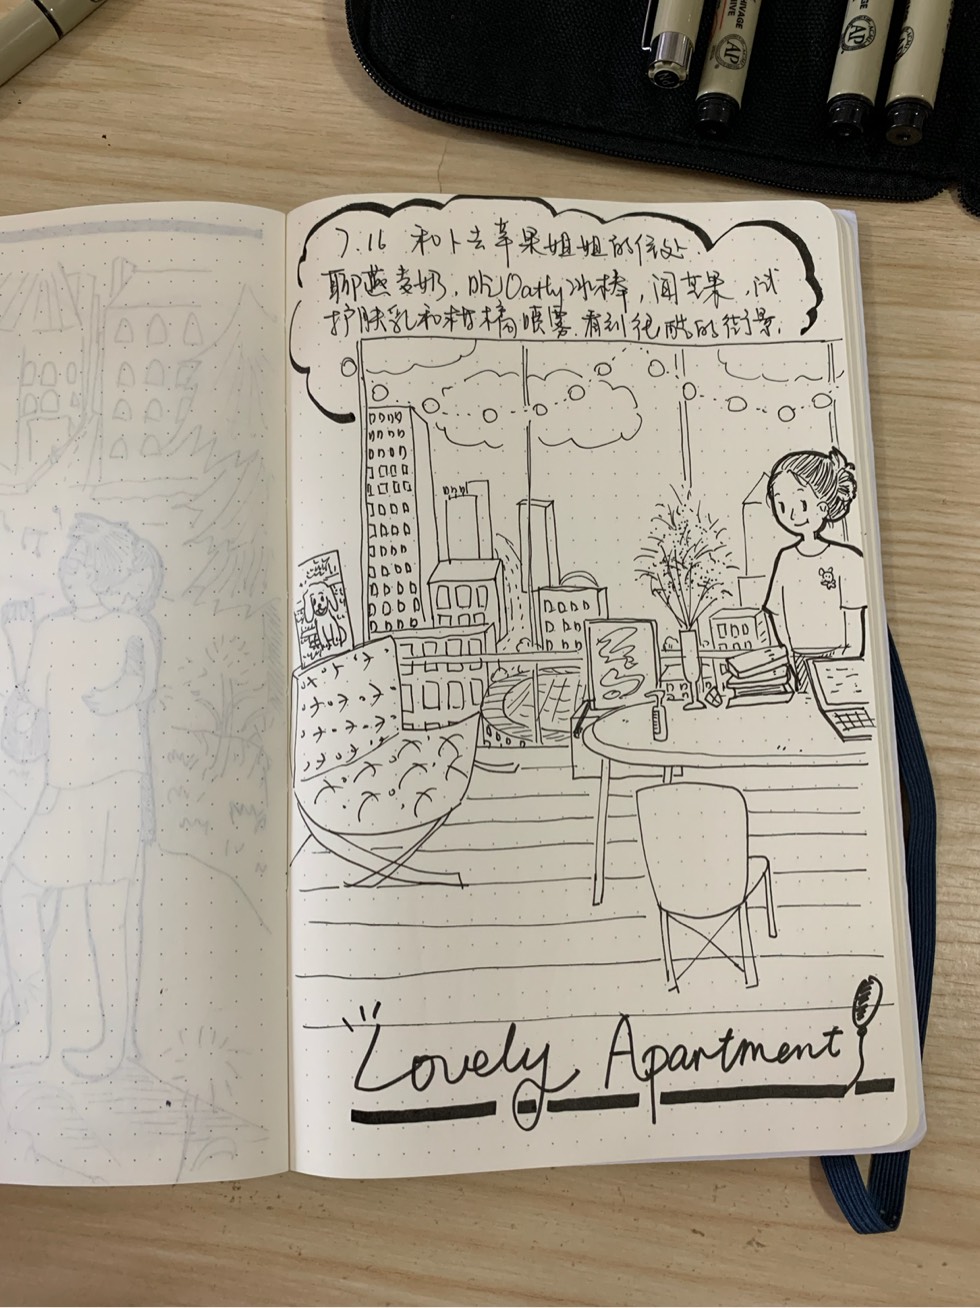 VAGE
AP
AP
7.16 和卜去苹果姐姐的住处
聊燕麦奶，吃Oatly冰棒，闻苹果，试
护肤乳和柑橘喷雾 看到很酷的街景.
Lovely Apartment